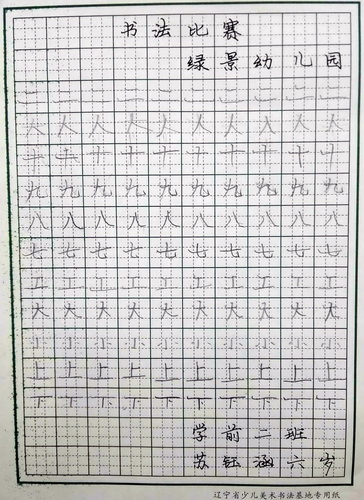 书法比赛
绿景幼儿园
二二二二二二二二二二
人人人人人人人人人人
十十十十十十十十十十
九九九九九九九九九九
八八八八八八八八八八
七七七七七七七七七七
工工工工工工工工工工
大大大大大大大大大大
小小小小小小小小小小
上上上上上上上上上上
下下下下下下下下下下
学前二班
苏钰涵六岁
辽宁省少儿美术书法基地专用纸